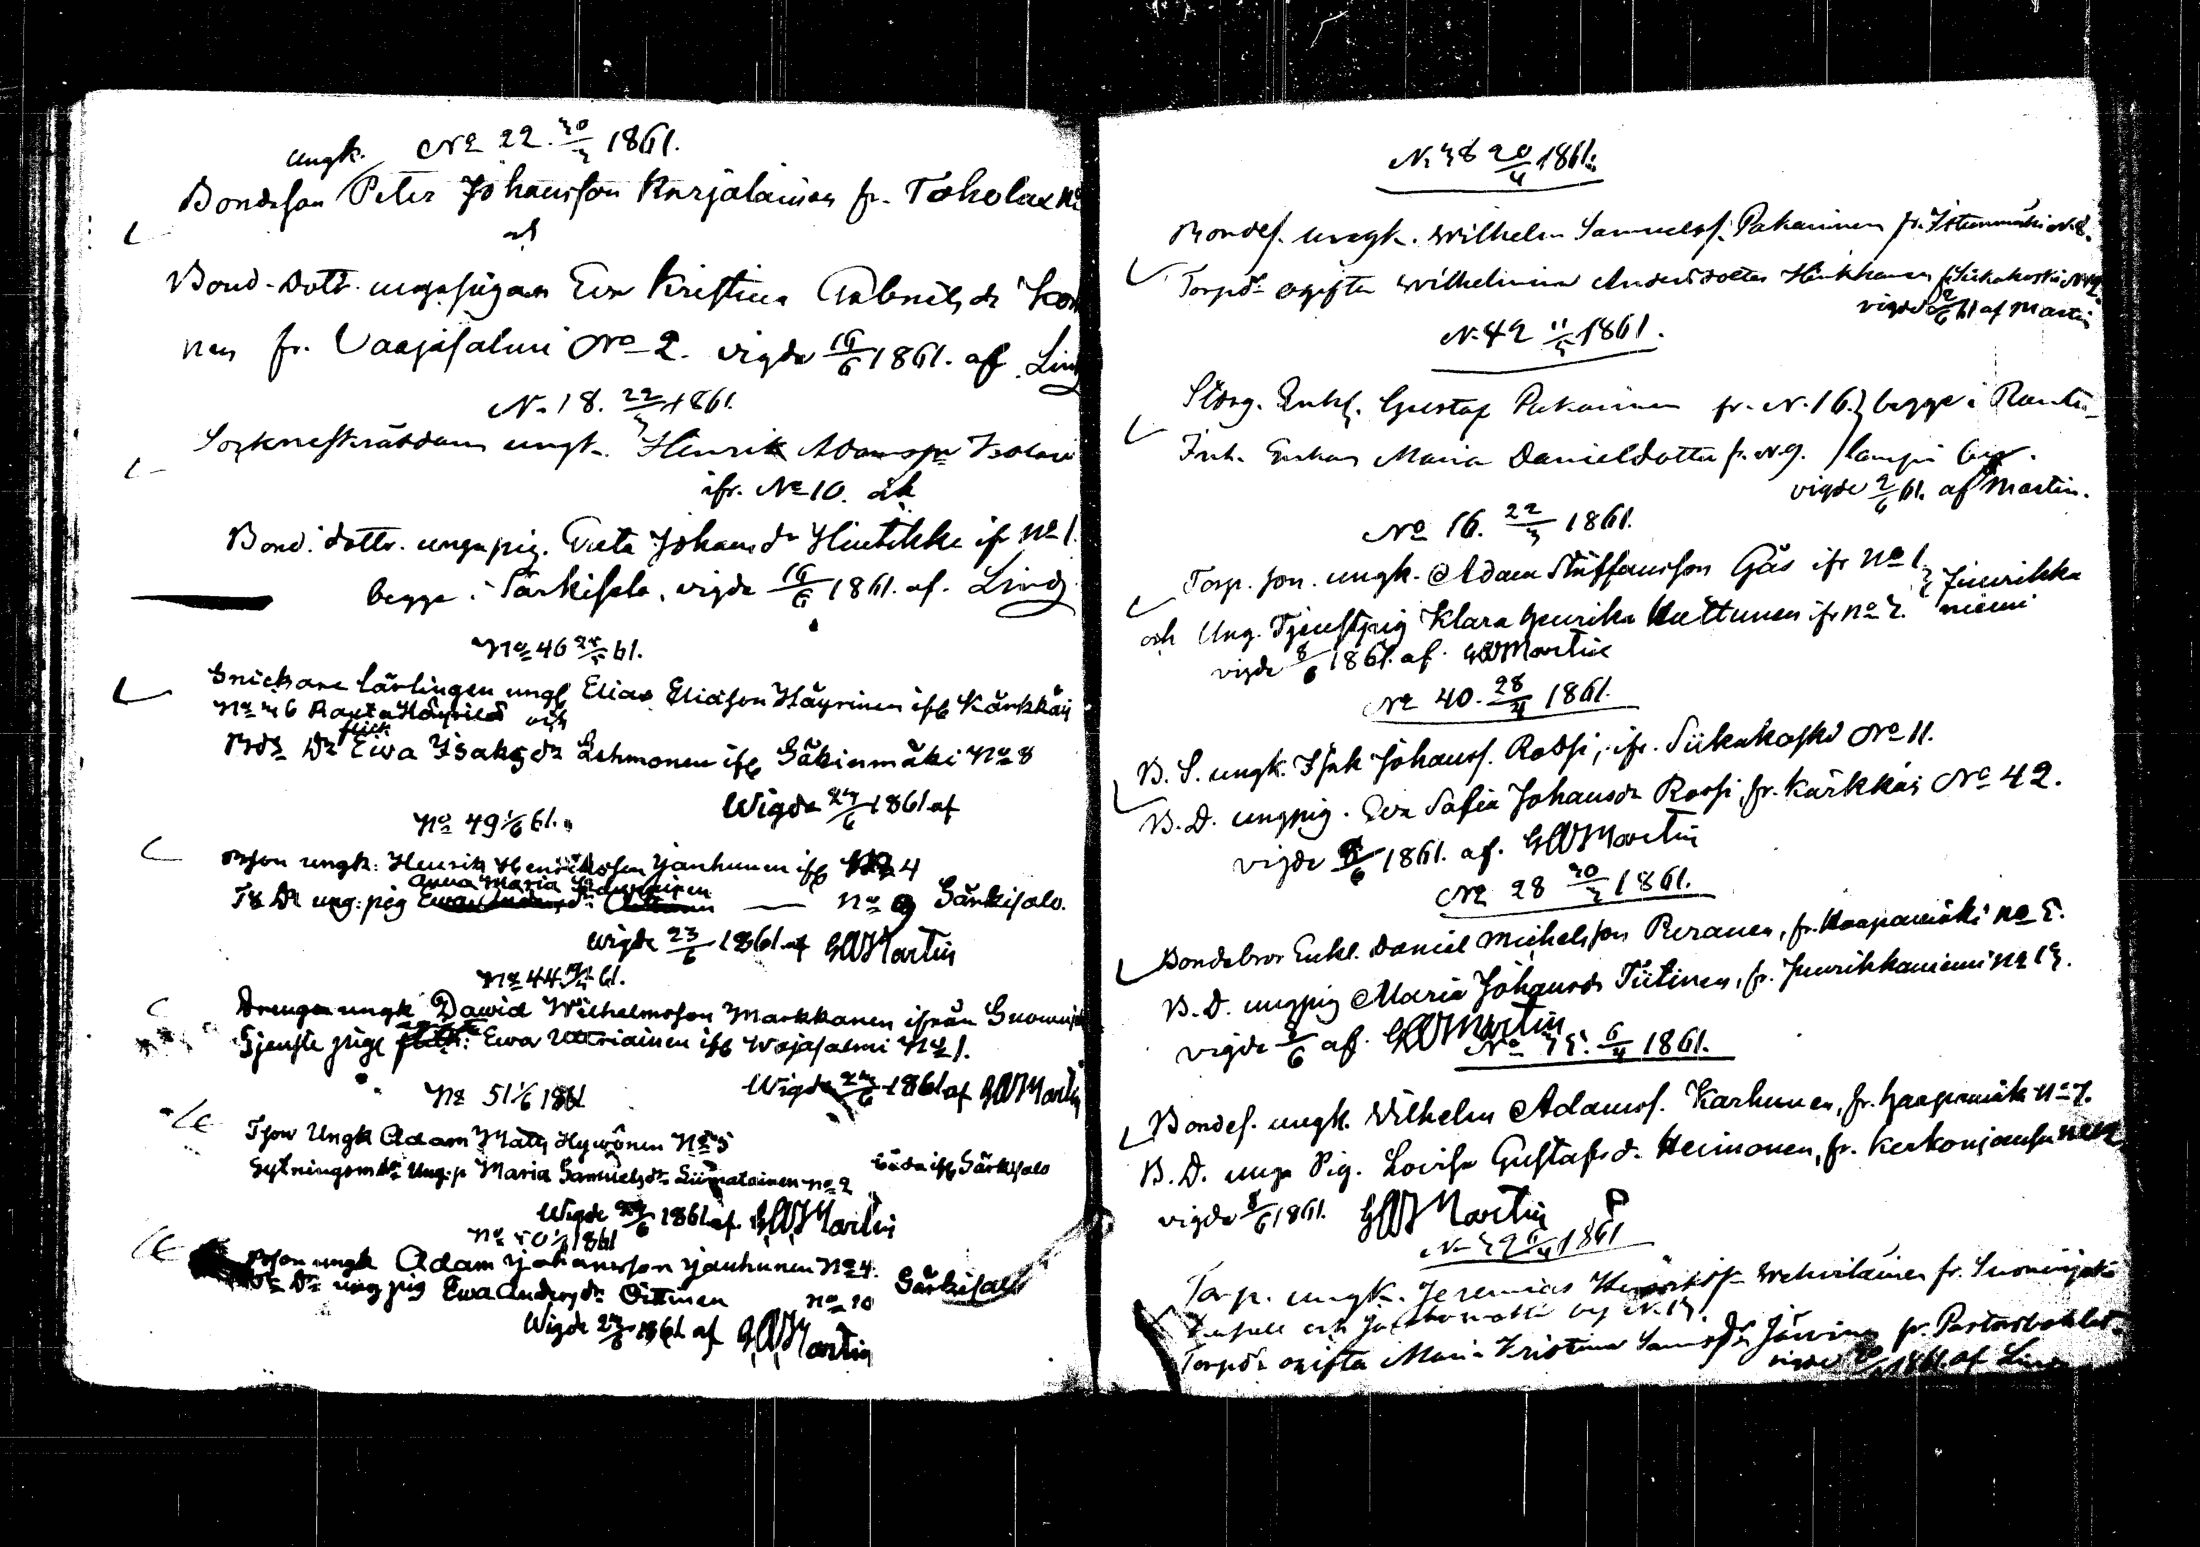 No 22. 30/3 1861.
ungk.
Bondeson Peter Johansson Karjalainen fr. Toholax No
och
Bond-dottr. unga pigan Eva Kristina Gabriels dr Kon
nen fr. Vaajasalmi No 2. vigde 16/6 1861. af Lind
N. 18. 22/3 1861.
ungk. Henrik Adamsson
ifr. No 10. och
Bond. dottr. unga pig. Greta Johans dr Hintikka ifr No 1.
begge i Särkisalo, vigde 16/6 1861. af. Lind
No 46 61.
Snickare lärlingen ungk Elias Eliasson Häyrinen ifr Kärkkäi
No 36 och
Bds Dr Ewa Isaks dr Lehmonen ifr Säkinmäki No 8
Wigde 24/6 1861 af
No 49 1/6 61.
Bson ungk: Henrik Henriksson Janhunen ifr No 4
Anna Maria
Ts Dr ung: pig No 9 Särkisalo.
Wigde 23/6 1861 af GWMartin
No 44 61.
Drengen ungk Dawid Wilhelmsson Markkanen ifrån
Tjenste pige Ewa ifr Wajasalmi No 1.
Wigde 24/6 1861 af GWMartin
No 51 1/6 1861
Tson Ungk Adam Mats Hywönen No 5
Sytningsm dr Ung: p Maria Samuels dr Liimatainen No 2 båda ifr Särkisalo
Wigde 24/6 1861 af GWMartin
No 50 1/6 1861
Bson ungk Adam Johansson Janhunen No 4.
Dr ung pig Ewa Anders dr Oittinen No 10 Särkisalo
Wigde 24/6 1861 af GWMartin
N. 38 20/4 1861.
Bondes. ungk. Wilhelm Samuelss. Pakarinen fr. Istunmäki N. 2.
Torp dr ogifta Wilhelmina Andersdotter Hinkkanen fr Siikakoski
vigde 2/6 61 af Martin
N. 42 11/5 1861.
Enkl. Gustaf Pakarinen fr. N. 16. } begge i Rauta-
Inh. Enkan Maria Danielsdotter fr. N. 9. } lampi by.
vigde 2/6 61. af Martin.
No 16. 22/3 1861.
Torp. son. ungk. Adam Staffansson Gås ifr No 1. } Jinrikka
och Ung. Tjenstpig Klara Henrika Huttunen ifr No 3. niemi
vigde 8/6 1861. af. GWMartin
No 40. 28/4 1861.
B. S. ungk. Isak Johanss. Rossi, ifr. Siikakoski No 11.
B. D. ungpig. Eva Sofia Johansdr Rossi, fr. Kärkkäis No 42.
vigde 8/6 1861. af. GWMartin
No 28 30/3 1861.
Bondebror Enkl. Daniel Michelsson Puranen, fr. Haapamäki No 5.
B. D. ungpig Maria Johansdr Tiitinen, fr. Jinrikkaniemi No 13.
vigde 8/6 af. GWMartin
No 35. 6/4 1861.
Bondes. ungk. Vilhelm Adamss. Karhunen, fr. Haapamäki No 7.
B. D. unga Pig. Lovisa Gustafs d. Heimonen, fr. Kerkonjoensuu No 12
vigde 8/6 1861. GWMartin
N. 32 6/4 1861
Torp. ungk. Jeremias Henrikss. Wehviläinen fr. Suonenjoki
by N. 13.
Torp dr ogifta Maria Kristina dr Järvinen fr.
vigde 1861. af